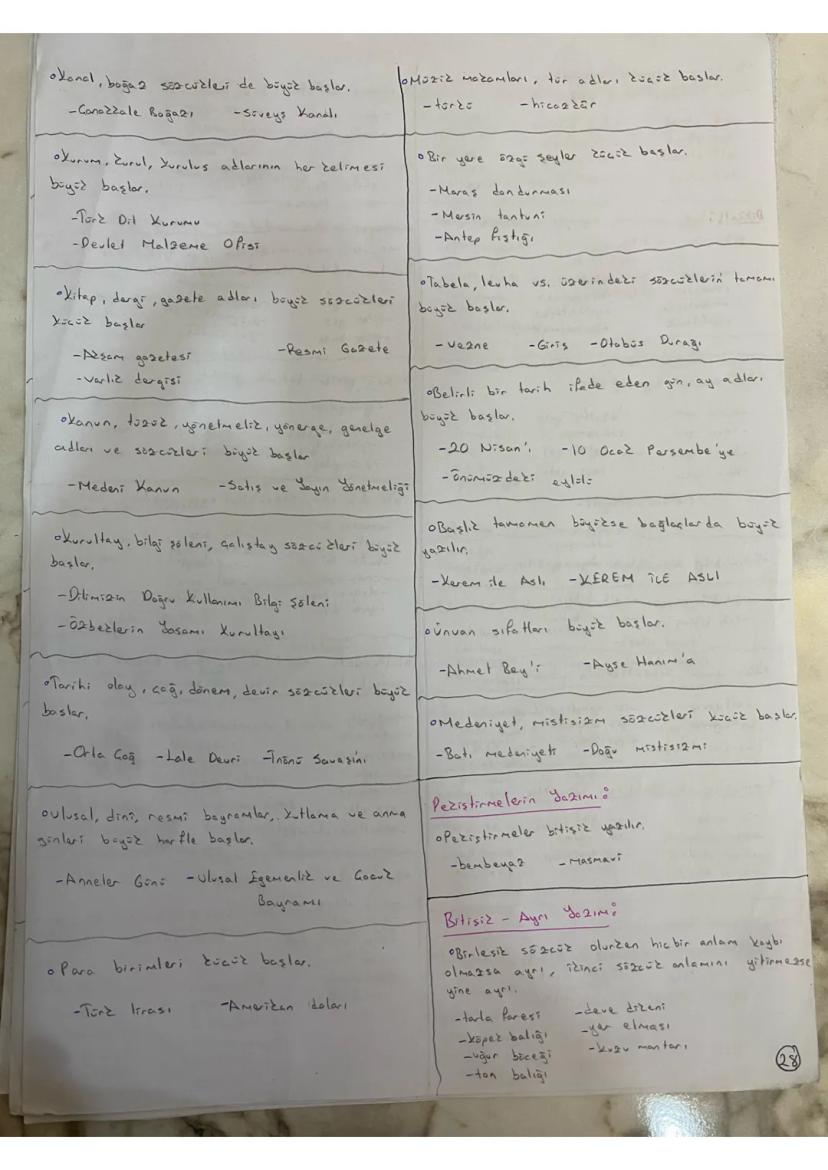 • Kanal, boğaz sözcükleri de büyük başlar.
- Çanakkale Boğazı - Süveyş Kanalı
• Kurum, kurul, kuruluş adlarının her kelimesi
büyük başlar.
- Türk Dil Kurumu
- Devlet Malzeme Ofisi
• Kitap, dergi, gazete adları büyük sözcükleri
küçük başlar
- Akşam gazetesi - Resmi Gazete
- Varlık dergisi
• Kanun, tüzük, yönetmelik, yönerge, genelge
adları ve sözcükleri büyük başlar
- Medeni Kanun - Satış ve Yayın Yönetmeliği
• Kurultay, bilgi şöleni, çalıştay sözcükleri büyük
başlar.
- Dilimizin Doğru Kullanımı Bilgi Şöleni
- Özbeklerin Yaşamı Kurultayı
• Tarihi olay, çağ, dönem, devir sözcükleri büyük
başlar.
- Orta Çağ - Lale Devri - İnönü Savaşını
• Ulusal, dini, resmi bayramlar, kutlama ve anma
günleri büyük harfle başlar.
- Anneler Günü - Ulusal Egemenlik ve Çocuk
Bayramı
• Para birimleri küçük başlar.
- Türk lirası - Amerikan doları
• Müzik makamları, tür adları küçük başlar.
- türkü - hicazkâr
• Bir yere özgü şeyler küçük başlar.
- Maraş dondurması
- Mersin tantuni
- Antep fıştığı
• Tabela, levha vs. üzerindeki sözcüklerin tamamı
büyük başlar.
- Vezne - Giriş - Otobüs Durağı
• Belirli bir tarih ifade eden gün, ay adları
büyük başlar.
- 20 Nisan'ı - 10 Ocak Perşembe'ye
- Önümüzdeki eylülü
• Başlık tamamen büyükse bağlaçlar da büyük
yazılır.
- Kerem ile Aslı - KEREM İLE ASLI
• Unvan sıfatları büyük başlar.
- Ahmet Bey'i - Ayşe Hanım'a
• Medeniyet, mistisizm sözcükleri küçük başlar.
- Batı medeniyeti - Doğu mistisizmi
Pekiştirmelerin Yazımı:
• Pekiştirmeler bitişik yazılır.
- bembeyaz - masmavi
Bitişik - Ayrı Yazım:
• Birleşik sözcük olurken hiçbir anlam kaybı
olmazsa ayrı, ikinci sözcük anlamını yitirmezse
yine ayrı.
- tarla faresi - deve dikeni
- köpek balığı - yer elması
- uğur böceği - kuzu mantarı
- ton balığı
28